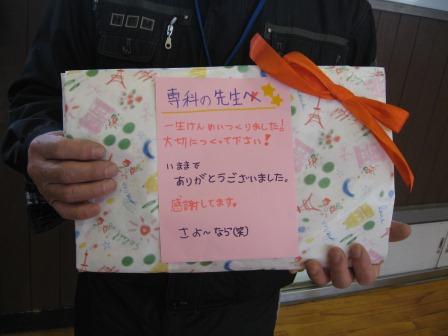 専科の先生へ
一生けんめいつくりました!
大切につくって下さい!
いままで
ありがとうございました。
感謝してます。
さよ～なら(笑)